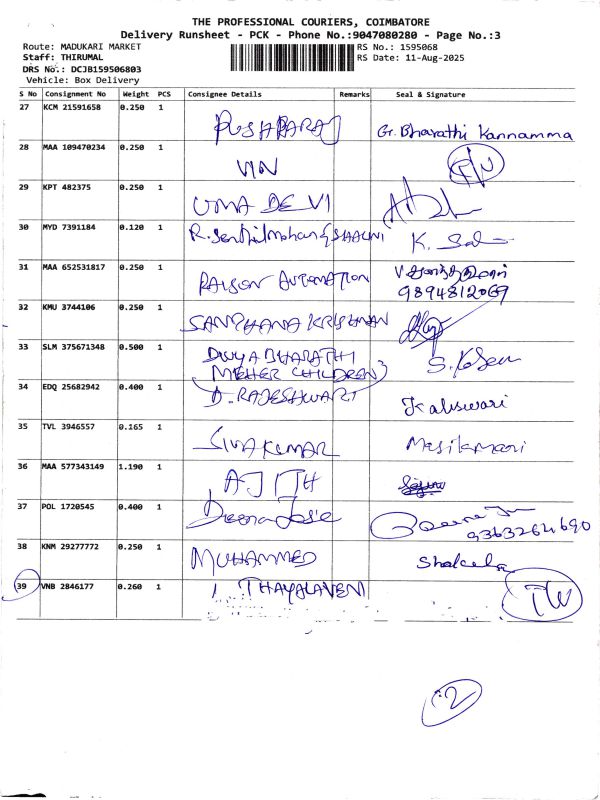 THE PROFESSIONAL COURIERS, COIMBATORE
Delivery Runsheet - PCK - Phone No.:9047080280 - Page No.:3
Route: MADUKARI MARKET RS No.: 1595068
Staff: THIRUMAL RS Date: 11-Aug-2025
DRS No.: DCJB159506803
Vehicle: Box Delivery
S No Consignment No Weight PCS Consignee Details Remarks Seal & Signature
27 KCM 21591658 0.250 1 PUSHPARAJ Gr. Bharathi Kannamma
28 MAA 109470234 0.250 1 VIN
29 KPT 482375 0.250 1 UMA DEVI
30 MYD 7391184 0.120 1 R. Senthilmohan & SHALINI K.
31 MAA 652531817 0.250 1 RAISON AUTOMATION
9894812069
32 KMU 3744106 0.250 1 SANTHANA KRISHNAN
33 SLM 375671348 0.500 1 DIVYA BHARATHI
MEHER CHILDREN)
34 EDQ 25682942 0.400 1 D. RAJESHWARI Kaliswari
35 TVL 3946557 0.165 1 SIVAKUMAR Masilamani
36 MAA 577343149 1.190 1 AJITH
37 POL 1720545 0.400 1 Deena Josie
9363264690
38 KNM 29277772 0.250 1 MUHAMMED Shakeela
39 VNB 2846177 0.260 1 THAYALAVENI TW
2